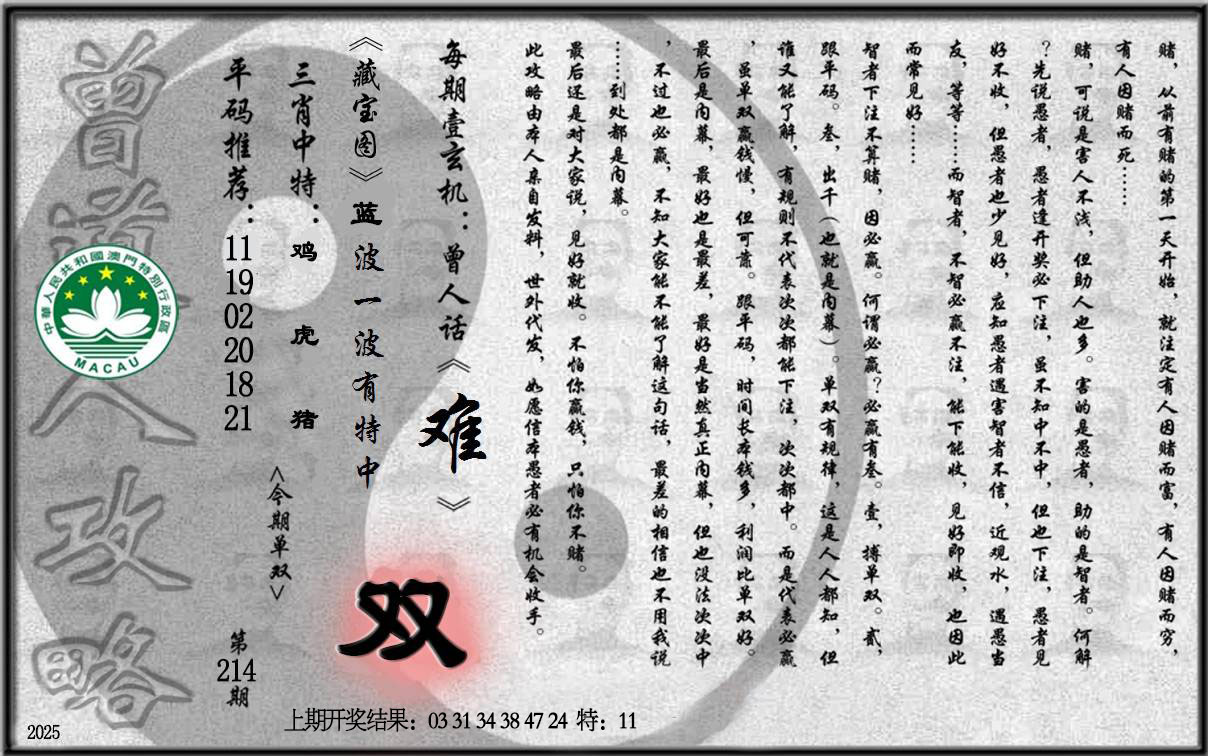 赌，从前有赌的第一天开始，就注定有人因赌而富，有人因赌而穷，
有人因赌而死……
赌，可说是害人不浅，但助人也多。害的是愚者，助的是智者。何解
？先说愚者，愚者逢开奖必下注，虽不知中不中，但也下注，愚者见
好不收，但愚者也少见好，应知愚者遇害智者不信，近观水，遇愚当
友，等等……而智者，不智必赢不注，能下能收，见好即收，也因此
而常见好……
智者下注不算赌，因必赢。何谓必赢？必赢有叁。壹，搏单双。贰，
跟平码。叁，出千（也就是内幕）。单双有规律，这是人人都知，但
谁又能了解，有规则不代表次次都能下注，次次都中。而是代表必赢
，虽单双赢钱慢，但可靠。跟平码，时间长本钱多，利润比单双好。
最后是内幕，最好也是最差，最好是当然真正内幕，但也没法次次中
，不过也必赢，不知大家能不能了解这句话，最差的相信也不用我说
……到处都是内幕。
最后还是对大家说，见好就收。不怕你赢钱，只怕你不赌。
此攻略由本人亲自发料，世外代发，如愿信本愚者必有机会收手。
每期壹玄机：曾人话《难》
《藏宝图》蓝波一波有特中
双
三肖中特：鸡 虎 猪
<今期单双>
平码推荐：11 19 02 20 18 21
第214期
曾道人攻略
中華人民共和國澳門特別行政區
MACAU
上期开奖结果：03 31 34 38 47 24 特：11
2025